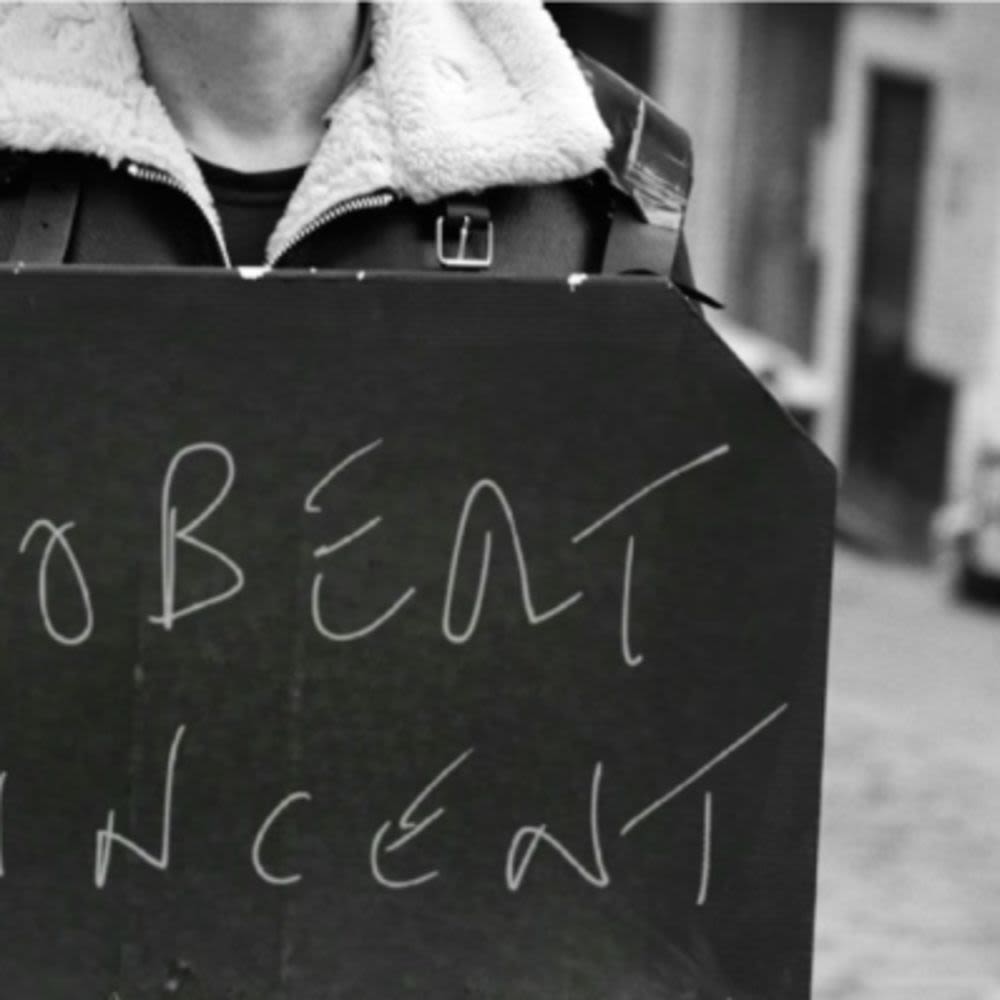 OBERT
INCENT